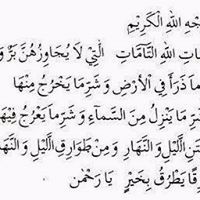 جْهِ اللهِ الْكَرِيْمِ
مَاتِ اللهِ التَّامَّاتِ الَّتِيْ لَا يُجَاوِزُهُنَّ بَرٌّ وَ
مَا ذَرَأَ فِي الْأَرْضِ وَ شَرِّمَا يَخْرُجُ مِنْهَا
شَرِّ مَا يَنْزِلُ مِنَ السَّمَاءِ وَ شَرِّمَا يَعْرُجُ فِيْهَا
تَنِ الَّيْلِ وَ النَّهَارِ وَ مِنْ طَوَارِقِ الَّيْلِ وَ النَّهَ
قًا يَطْرُقُ بِخَيْرٍ يَا رَحْمٰنُ